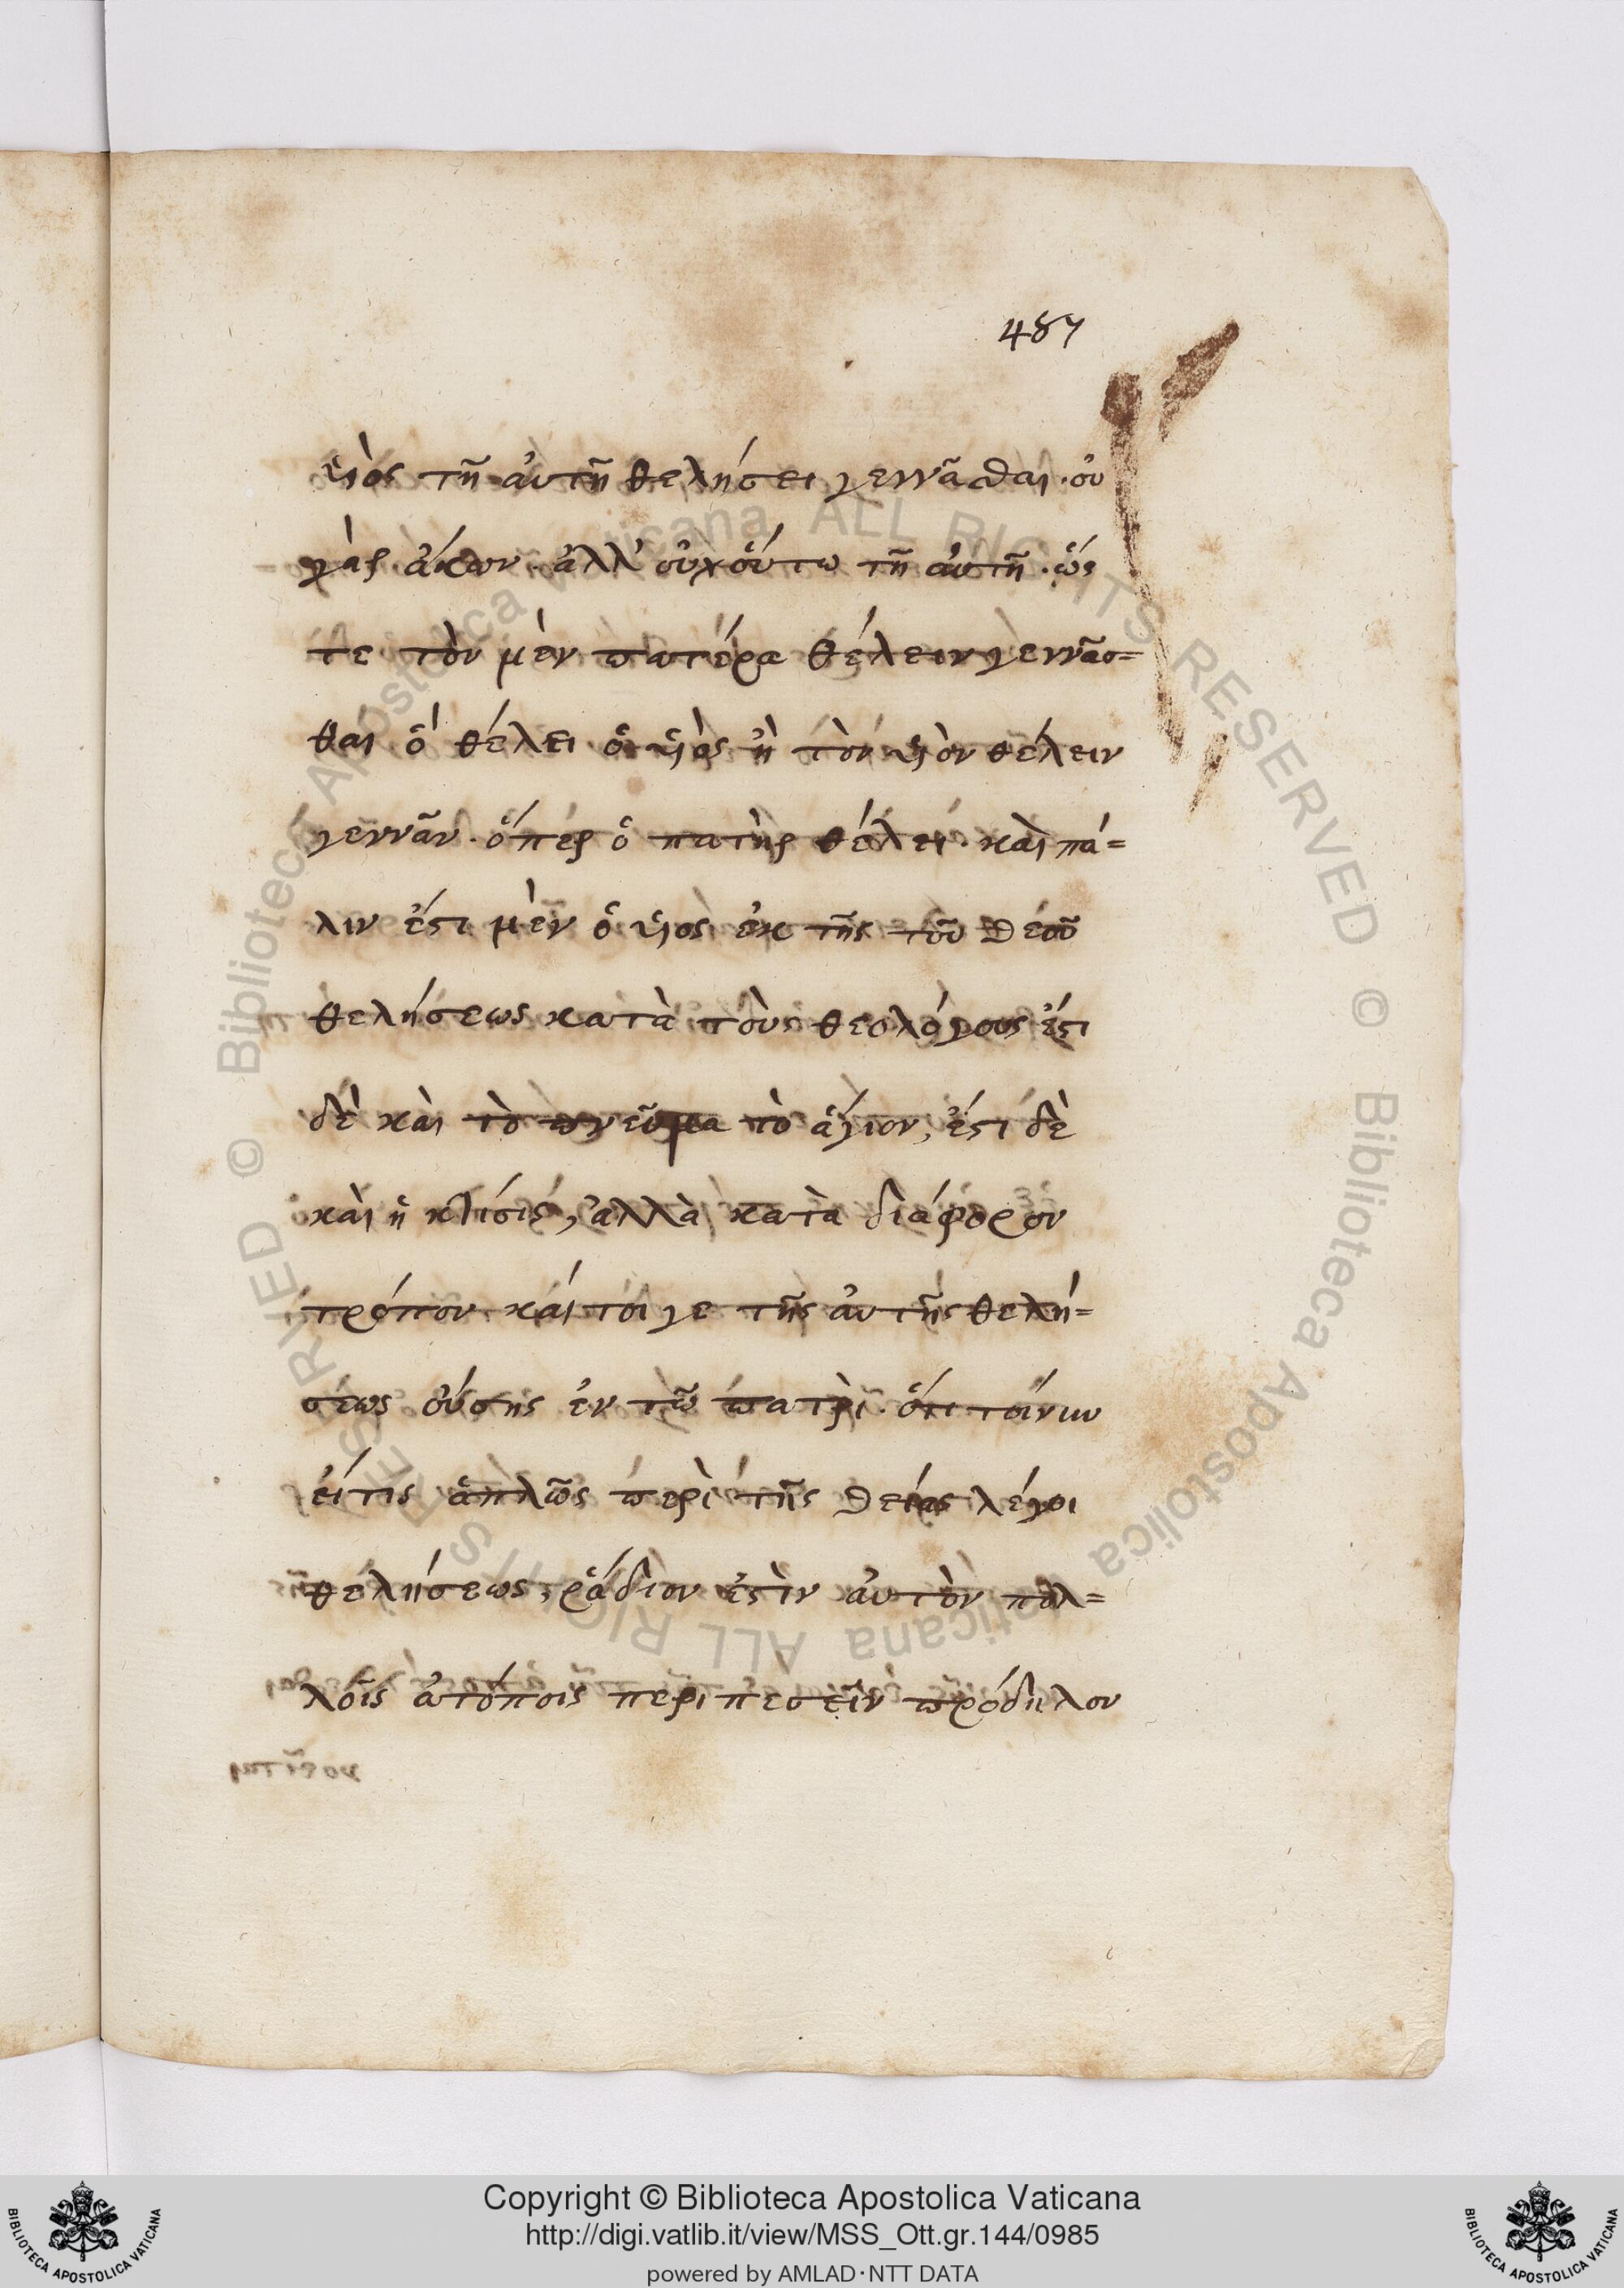 487
υἱὸς τῆ αὐτῆ θελήσει γεννᾶσθαι · οὐ
γὰρ ἄκων · ἀλλ' οὐχ οὕτω τῆ αὐτῆ · ὥς
τε τὸν μὲν πατέρα θέλειν γεννᾶσ=
θαι ὃ θέλει ὁ υἱὸς ἢ τὸν υἱὸν θέλειν
γεννᾶν · ὅπερ ὁ πατὴρ θέλει · καὶ πά=
λιν ἔστι μὲν ὁ υἱὸς ἐκ τῆς τοῦ θεοῦ
θελήσεως κατὰ τοὺς θεολόγους ἔστι
δὲ καὶ τὸ πνεῦμα τὸ ἅγιον, ἔστι δὲ
καὶ ἡ κτίσις, ἀλλὰ κατὰ διάφορον
τρόπον καί τοι γε τῆς αὐτῆς θελή=
σεως οὔσης ἐν τῶ πατρί · ὅτι τοίνυν
εἴ τις ἁπλῶς περὶ τῆς θείας λέγοι
θελήσεως, ῥάδιον ἐστὶν αὐτὸν πολ=
λοῖς ἀτόποις περιπεσεῖν πρόδηλον
© Biblioteca Apostolica Vaticana ALL RIGHTS RESERVED © Biblioteca Apostolica Vaticana ALL RIGHTS RESERVED
Copyright © Biblioteca Apostolica Vaticana
http://digi.vatlib.it/view/MSS_Ott.gr.144/0985
powered by AMLAD·NTT DATA
BIBLIOTECA APOSTOLICA VATICANA
BIBLIOTECA APOSTOLICA VATICANA